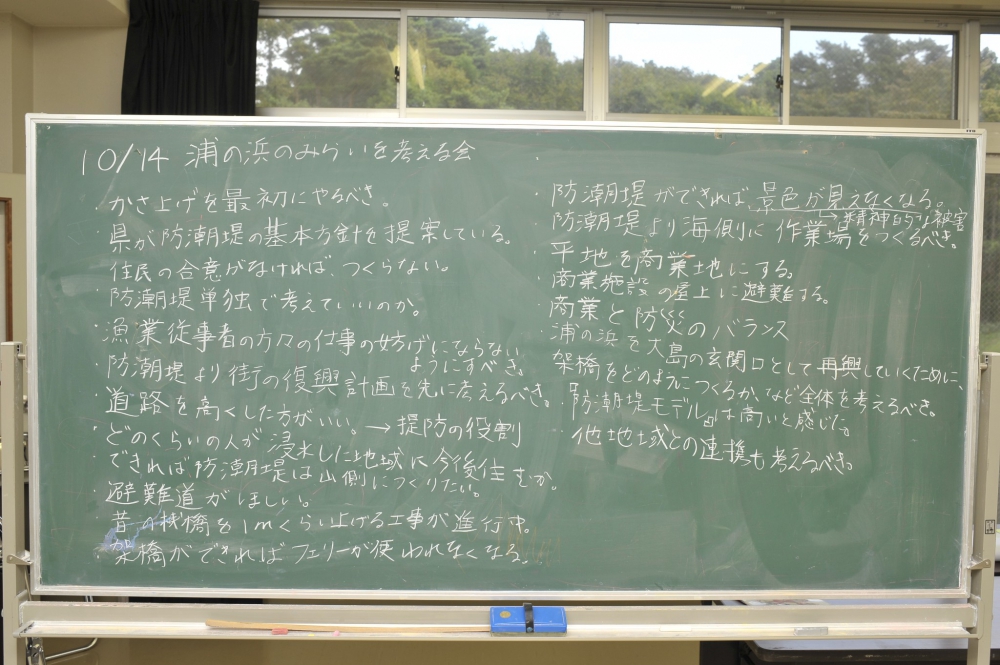 10/14 浦の浜のみらいを考える会
・かさ上げを最初にやるべき。
・県が防潮堤の基本方針を提案している。
住民の合意がなければ、つくらない。
・防潮堤単独で考えていいのか。
・漁業従事者の方々の仕事の妨げにならない
ようにすべき。
・防潮堤より街の復興計画を先に考えるべき。
・道路を高くした方がいい。→堤防の役割
・どのくらいの人が浸水した地域に今後住むか。
・できれば防潮堤は山側につくりたい。
・避難道がほしい。
・昔の桟橋を1mくらい上げる工事が進行中。
・架橋ができればフェリーが使われなくなる。
・防潮堤ができれば、景色が見えなくなる。
→精神的な被害
・防潮堤より海側に作業場をつくるべき。
・平地を商業地にする。
・商業施設の屋上に避難する。
・商業と防災のバランス
・浦の浜を大島の玄関口として再興していくために、
架橋をどのようにつくるか、など全体を考えるべき。
・防潮堤モデルは高いと感じた。
他地域との連携も考えるべき。